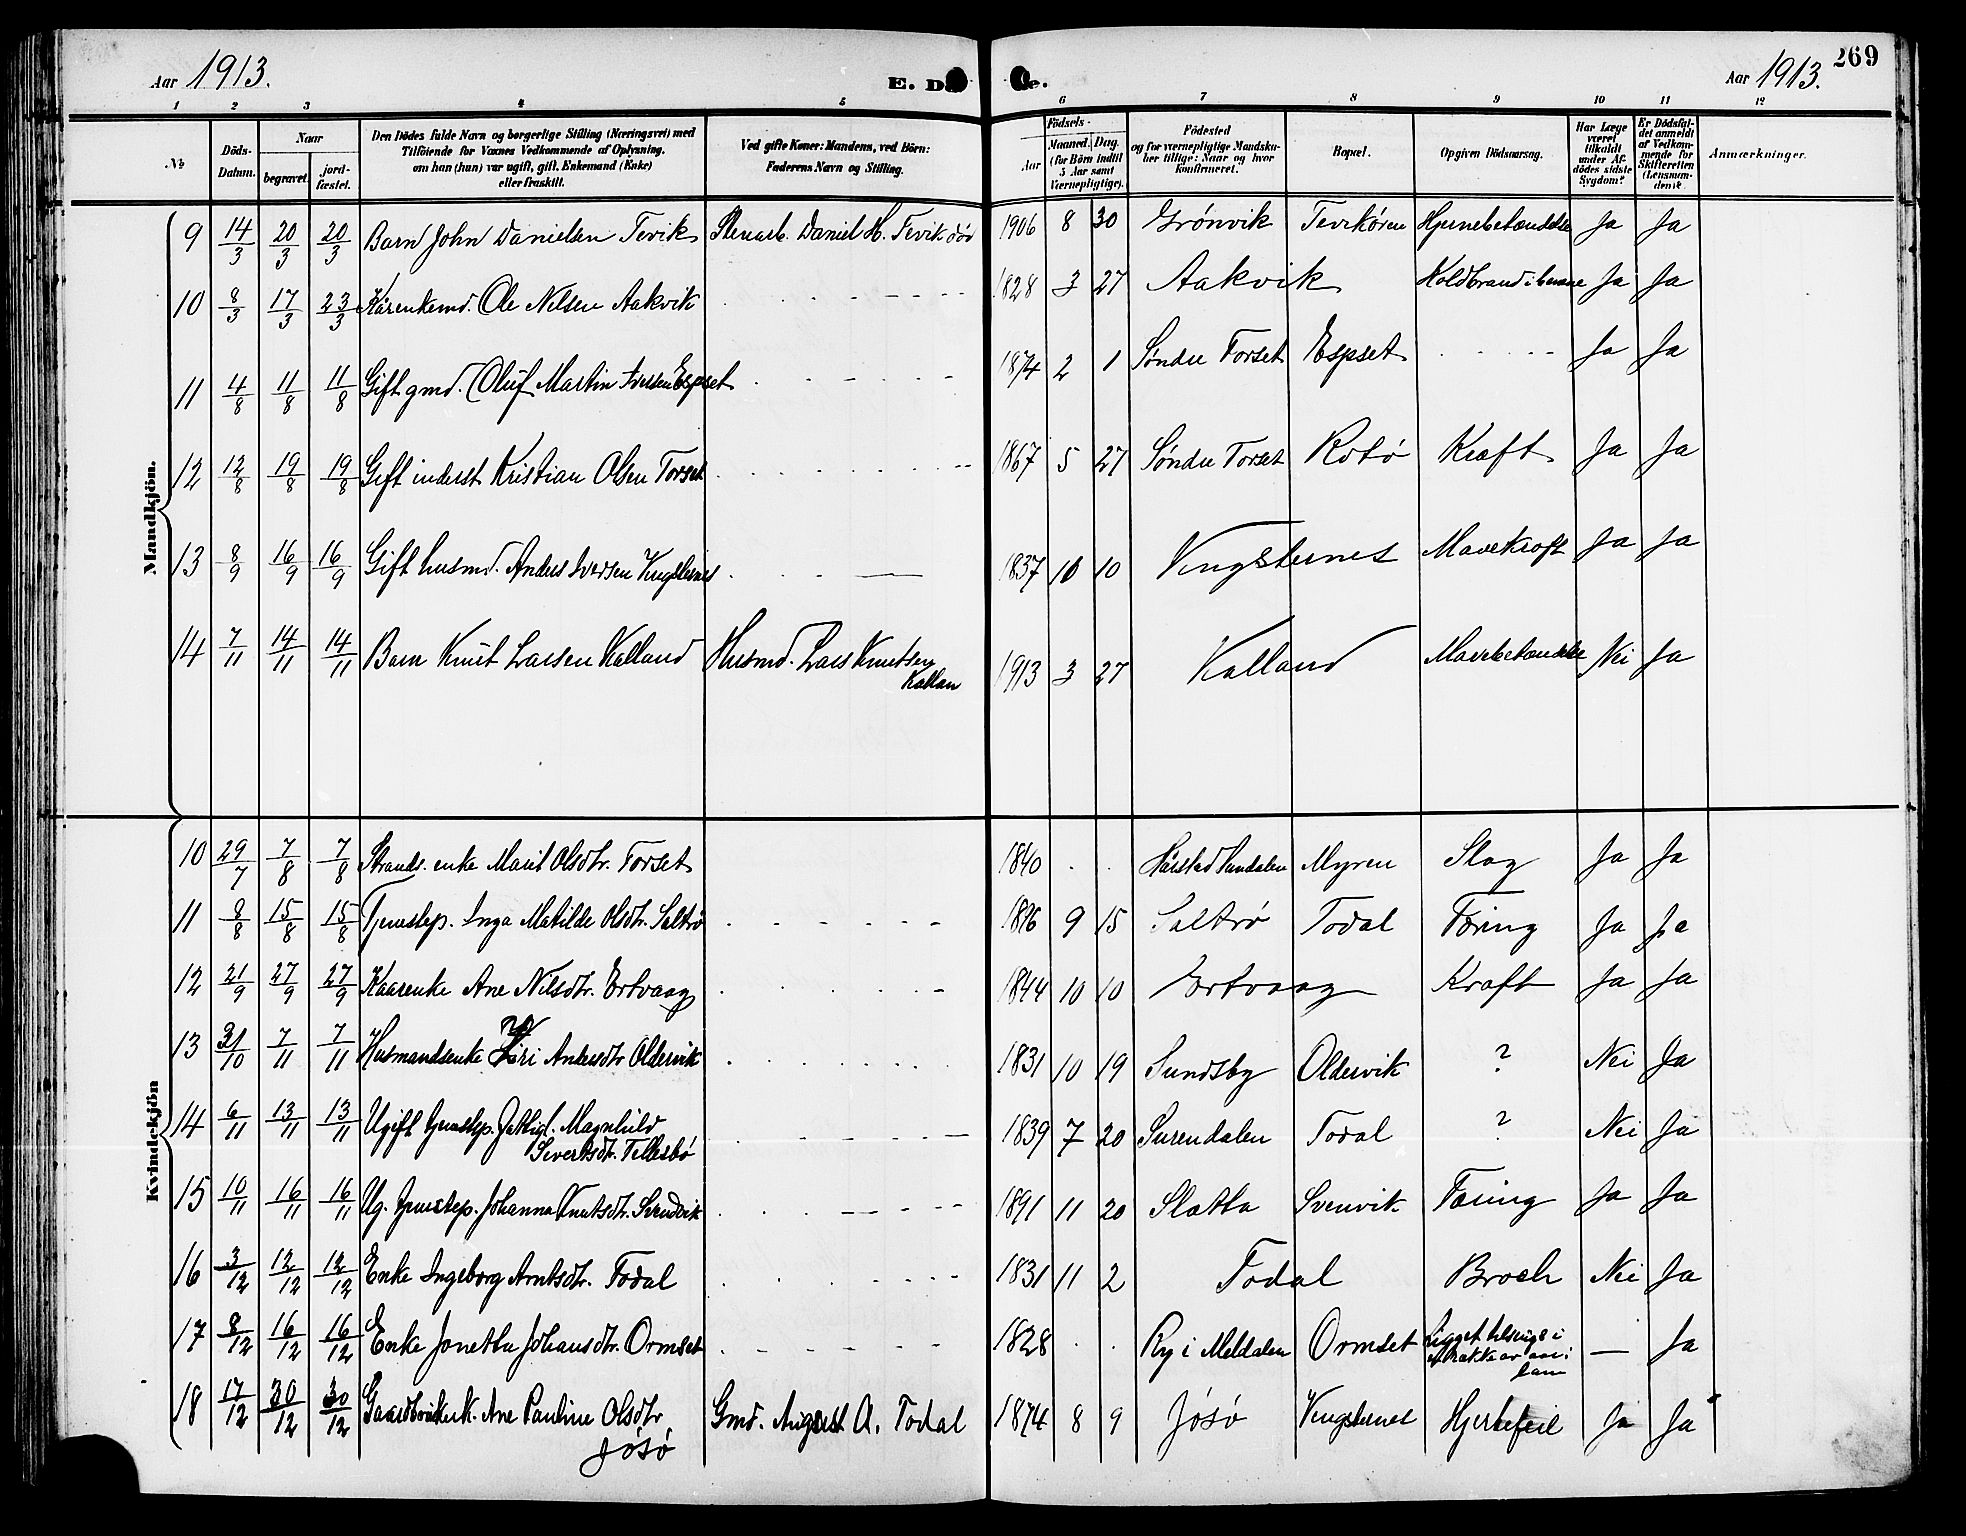 Aar 1913. E. D e. Aar 1913. 269
1 2 3 4 5 6 7 8 9 10 11 12
No
Döds-Datum.
Naar begravet. jord-fæstet.
Den Dödes fulde Navn og borgerlige Stilling (Næringsvei) med
Tilföiende for Voxnes Vedkommende af Oplysning,
om han (hun) var ugift, gift, Enkemand (Enke)
eller fraskilt.
Ved gifte Koner: Mandens, ved Börn:
Faderens Navn og Stilling.
Födsels-
Aar Maaned. Dag.
(for Börn indtil
5 Aar samt
Værnepligtige).
Födested
og for værnepligtige Mandska-
ber tillige: Naar og hvor
konfirmeret.
Bopæl.
Opgiven Dödsaarsag.
Har Læge
været
tilkaldt
under Af-
dödes sidste
Sygdom?
Er Dödsfal-
det anmeldt
af Vedkom-
mende for
Skifteretten
(Lensman-
den)?
Anmærkninger.
Mandkjön.
9 14/3 20/3 20/3 Barn John Danielsen Tevik Stenarb. Daniel H. Tevik 1906 8 30 Grønvik Tevikøren Hjernebetændelse Ja Ja
10 8/3 17/3 23/3 Kårenkemd. Ole Nilsen Aakvik 1828 3 27 Aakvik Koldbrand i benene Ja Ja
11 4/8 11/8 11/8 Gift gmd. Oluf Martin Iversen Espset 1874 2 1 Søndre Torset Espset Ja Ja
12 12/8 19/8 19/8 Gift inderst Kristian Olsen Torset 1867 5 27 Søndre Torset Rotø Kræft Ja Ja
13 8/9 16/9 16/9 Gift husmd. Anders Iversen Vingsternes 1837 10 10 Vingsternes Mavekræft Ja Ja
14 7/11 14/11 14/11 Barn Knut Larsen Kalland Husmd. Lars Knutsen 1913 3 27 Kalland Mavebetændelse Nei Ja
Kallan
Kvindekjön
10 29/7 7/8 7/8 Strands. enke Marit Olsdtr. Torset 1840 . . Myren Slag Ja Ja
11 8/8 15/8 15/8 Tjenestep. Inga Matilde Olsdtr. Saltrø 1896 9 15 Saltrø Todal Tæring Ja Ja
12 21/9 27/9 27/9 Kaarenke Ane Nilsdtr. Ertvaag 1844 10 10 Ertvaag Kræft Ja Ja
13 31/10 7/11 7/11 Husmandsenke Kari Andersdtr Oldervik 1831 10 19 Sundsby Oldervik ? Nei Ja
14 6/11 13/11 13/11 Ugift tjenestep. Magnhild 1839 7 20 Surendalen Todal ? Nei Ja
Sivertsdtr. Tellesbø
15 10/11 16/11 16/11 Ug. tjenestep. Johanna Knutsdtr. Svendvik 1891 11 20 Slatta Svenvik Tæring Ja Ja
16 3/12 12/12 12/12 Enke Ingeborg Arntsdtr. Todal 1831 11 2 Todal Broch Nei Ja
17 8/12 16/12 16/12 Enke Janetta Johansdtr. Ormset 1828 . . Ry i Meldalen Ormset Ligget tilsengs i — Ja
en række av aar
18 17/12 30/12 30/12 Gaardbrukerk. Ane Pauline Olsdtr Gmd. August A. Todal 1874 8 9 Jøsø Vingsternes Hjertefeil Ja Ja
Jøsø